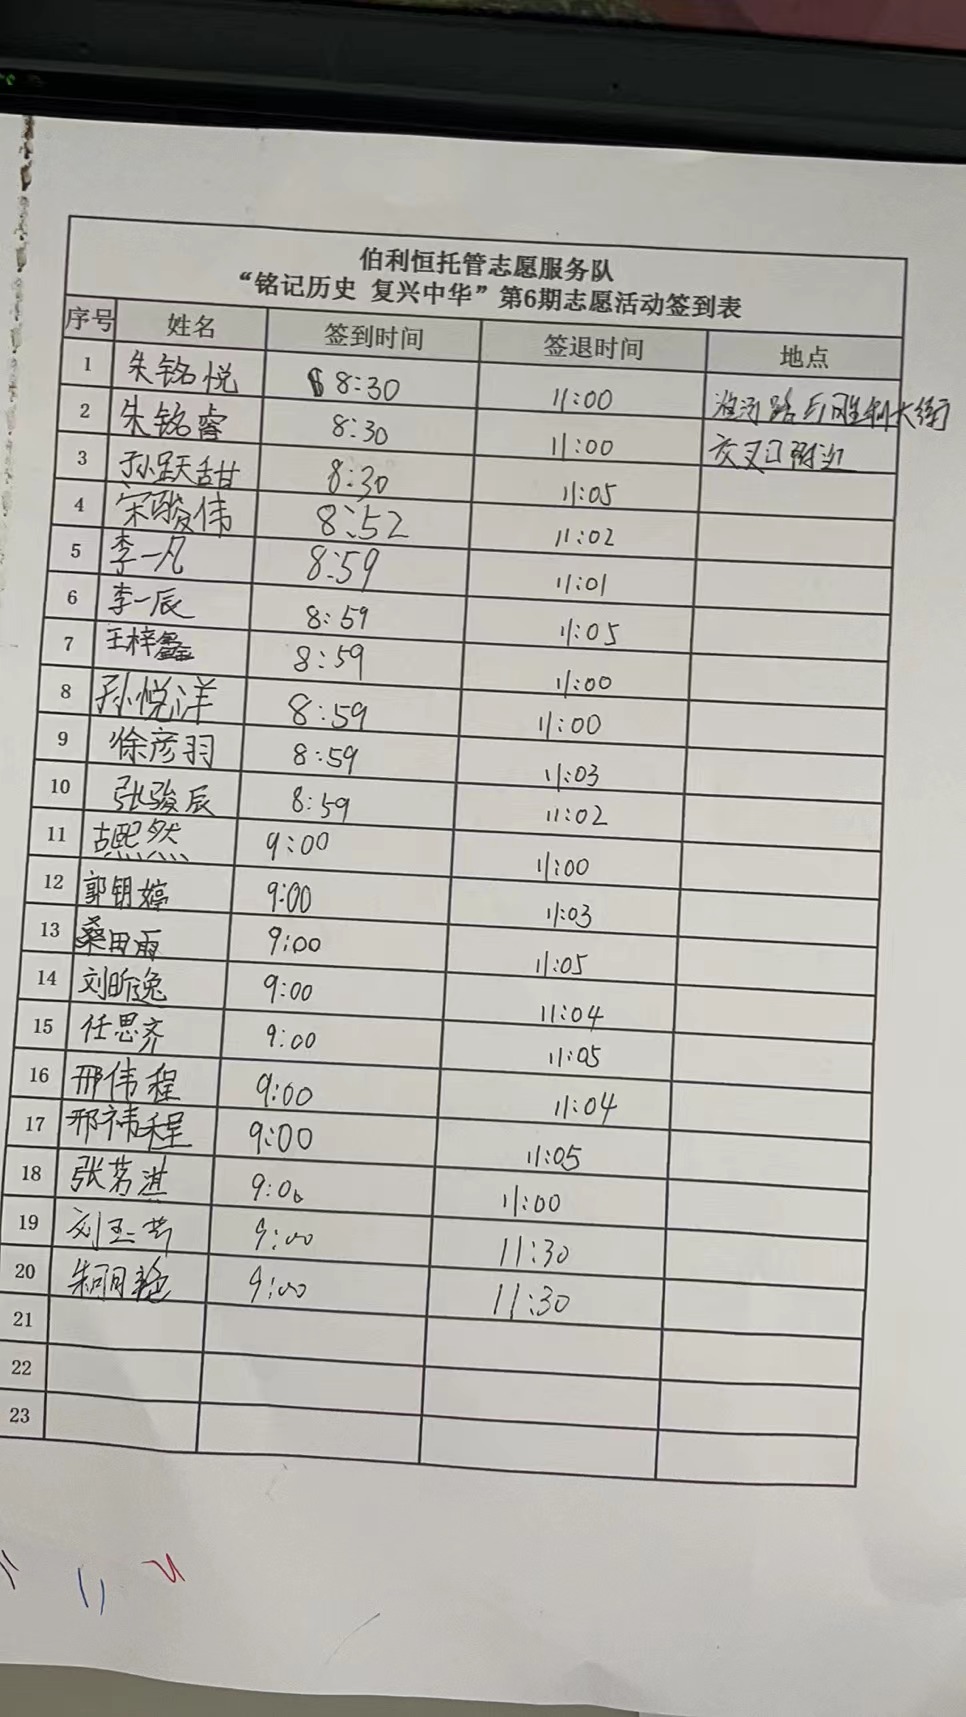 伯利恒托管志愿服务队
“铭记历史 复兴中华”第6期志愿活动签到表
序号 姓名 签到时间 签退时间 地点
1 朱铭悦 8:30 11:00 路与胜利大街
2 朱铭睿 8:30 11:00 交叉口附近
3 孙跃甜 8:30 11:05
4 宋骏伟 8:52 11:02
5 李一凡 8:59 11:01
6 李一辰 8:59 11:05
7 王梓鑫 8:59 11:00
8 孙悦洋 8:59 11:00
9 徐彦羽 8:59 11:03
10 张骏辰 8:59 11:02
11 古熙然 9:00 11:00
12 郭钥婷 9:00 11:03
13 桑田雨 9:00 11:05
14 刘昕逸 9:00 11:04
15 任思齐 9:00 11:05
16 邢伟程 9:00 11:04
17 邢祎程 9:00 11:05
18 张茗淇 9:00 11:00
19 刘玉芳 9:00 11:30
20 朱丽艳 9:00 11:30
21
22
23